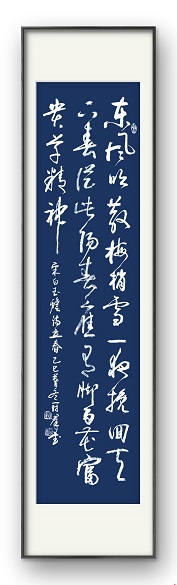 东风吹散梅梢雪一夜挽回天
下春从此阳春应有脚百花富
贵草精神
宋白玉蟾诗立春乙巳